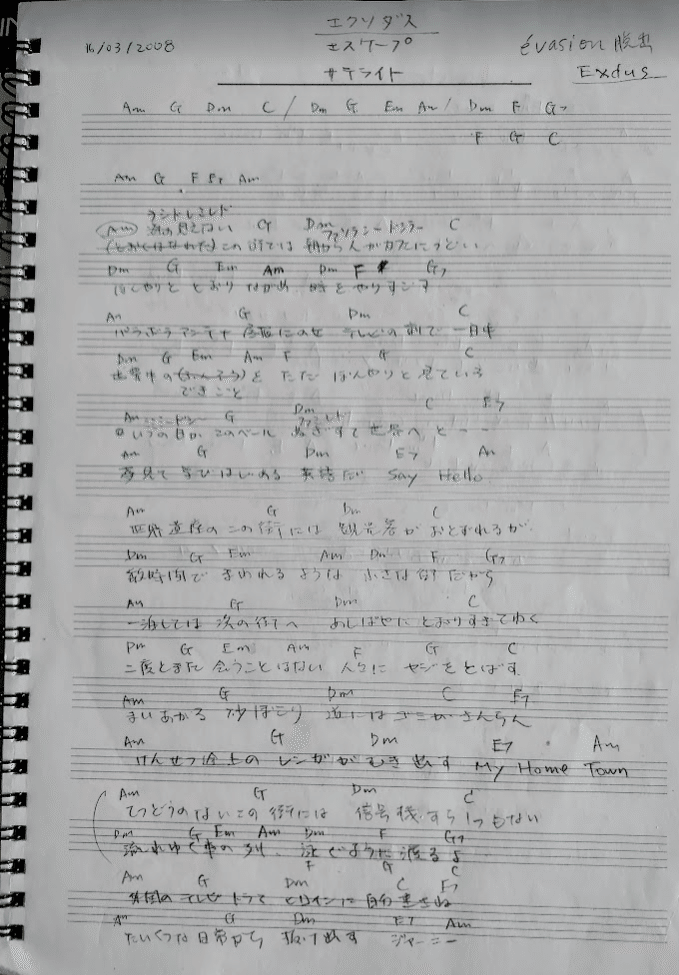 エクソダス
16/03/2008 エスケープ évasion 脱出
サテライト Exdus
Am G Dm C / Dm G Em Am / Dm F G7
F G C
Am G F Am
Am G Dm C
この街では 朝から
Dm G Em Am Dm F G7
ぼんやりと とおり ながめ 時をやりすごす
Am G Dm C
パラボラアンテナ 屋根にのせ テレビの前で 一日中
Dm G Em Am F G C
世界中の を ただ ぼんやりと見ている
できごと
Am G Dm C E7
いつの日か このベール ぬぎすて 世界へ と
Am G Dm E7 Am
夢見て 学びはじめる 英語だ Say Hello
Am G Dm C
世界遺産の この街には 観光客が おとずれるが
Dm G Em Am Dm F G7
数時間で まわれる ような 小さな街 だから
Am G Dm C
一泊しては 次の街へ あしばやに とおりすぎてゆく
Dm G Em Am F G C
二度とまた 会うことはない 人々に をとばす
Am G Dm C E7
まいあがる 砂ぼこり 道には ゴミがさんらん
Am G Dm E7 Am
けんせつ途上の レンガがむき出す My Home Town
Am G Dm C
てつどうのない この街には 信号機すら 1つもない
Dm G Em Am Dm F G7
流れゆく車の列 泳ぐように渡るよ
F G C
Am G Dm C E7
外国のテレビドラマ ヒロインに 自分重さね
Am G Dm E7 Am
たいくつな日常から 抜け出す ジャーニー